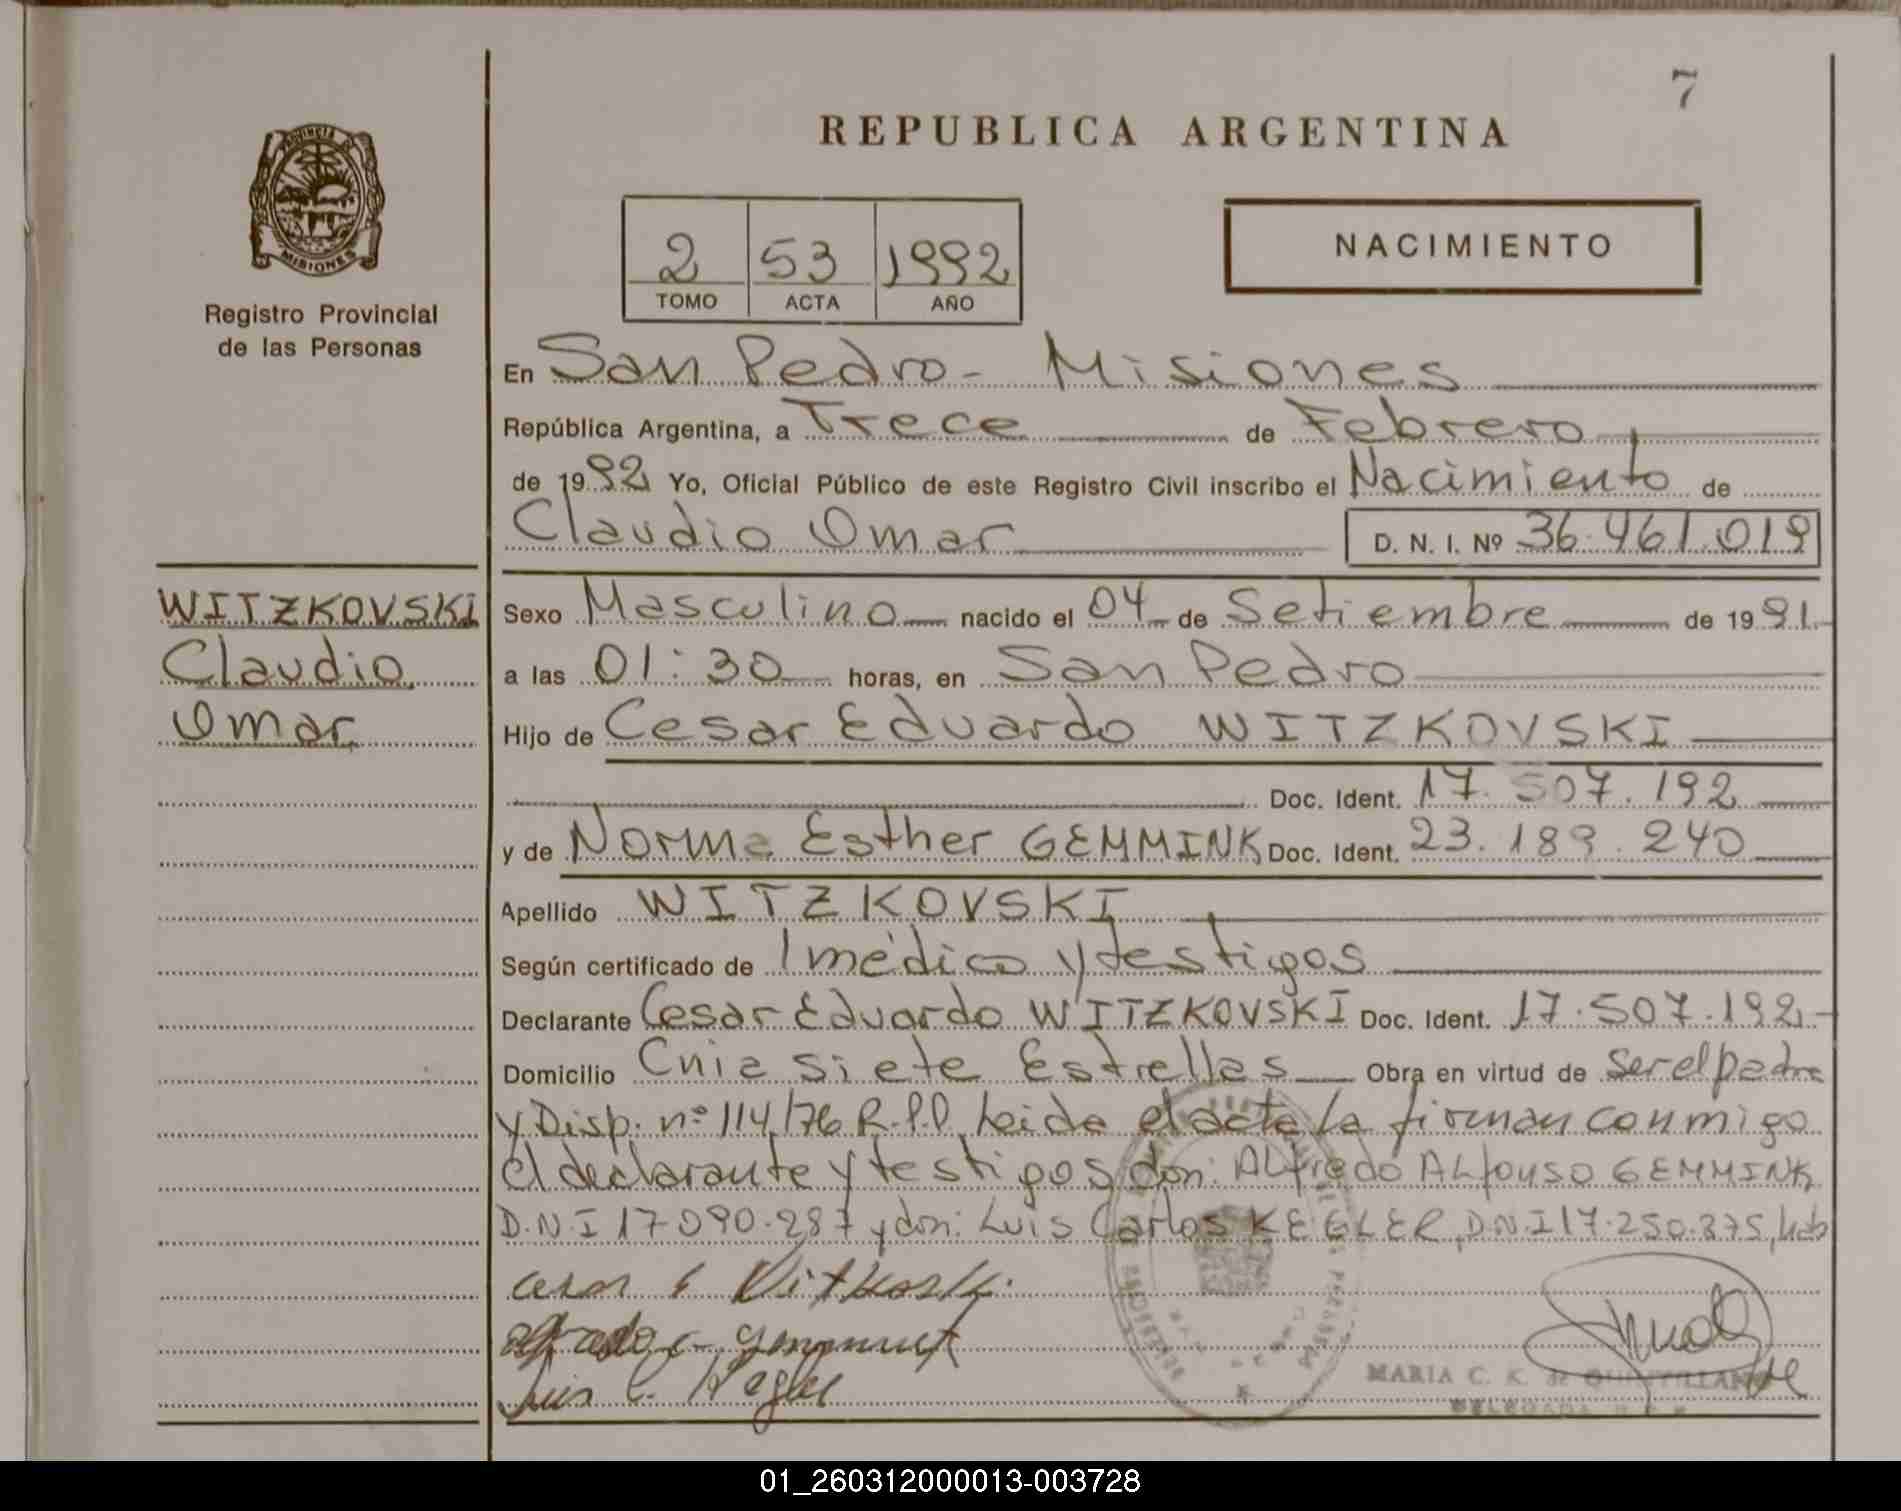 7
REPUBLICA ARGENTINA
PROVINCIA DE
MISIONES
Registro Provincial
de las Personas
2 53 1992
TOMO ACTA AÑO
NACIMIENTO
En San Pedro - Misiones
República Argentina, a Trece de Febrero
de 1992 Yo, Oficial Público de este Registro Civil inscribo el Nacimiento de
Claudio Omar D. N. I. Nº 36.461.019
WITZKOVSKI
Claudio
Omar
Sexo Masculino nacido el 04 de Setiembre de 1991
a las 01:30 horas, en San Pedro
Hijo de Cesar Eduardo WITZKOVSKI
Doc. Ident. 17.507.192
y de Norma Esther GEMMINK Doc. Ident. 23.189.240
Apellido WITZKOVSKI
Según certificado de 1 médico y testigos
Declarante Cesar Eduardo WITZKOVSKI Doc. Ident. 17.507.192
Domicilio Cnia Siete Estrellas Obra en virtud de Ser el padre
y Disp. nº 114/76 R.P.P. Leida el acta la firman conmigo
el declarante y testigos don: ALfredo ALfonso GEMMINK
D.N.I 17.090.287 y don: Luis Carlos KEGLER, D.N.I 17.250.375,
Luis C. Kegler
MARIA C. K. de
DELEGADA
01_260312000013-003728